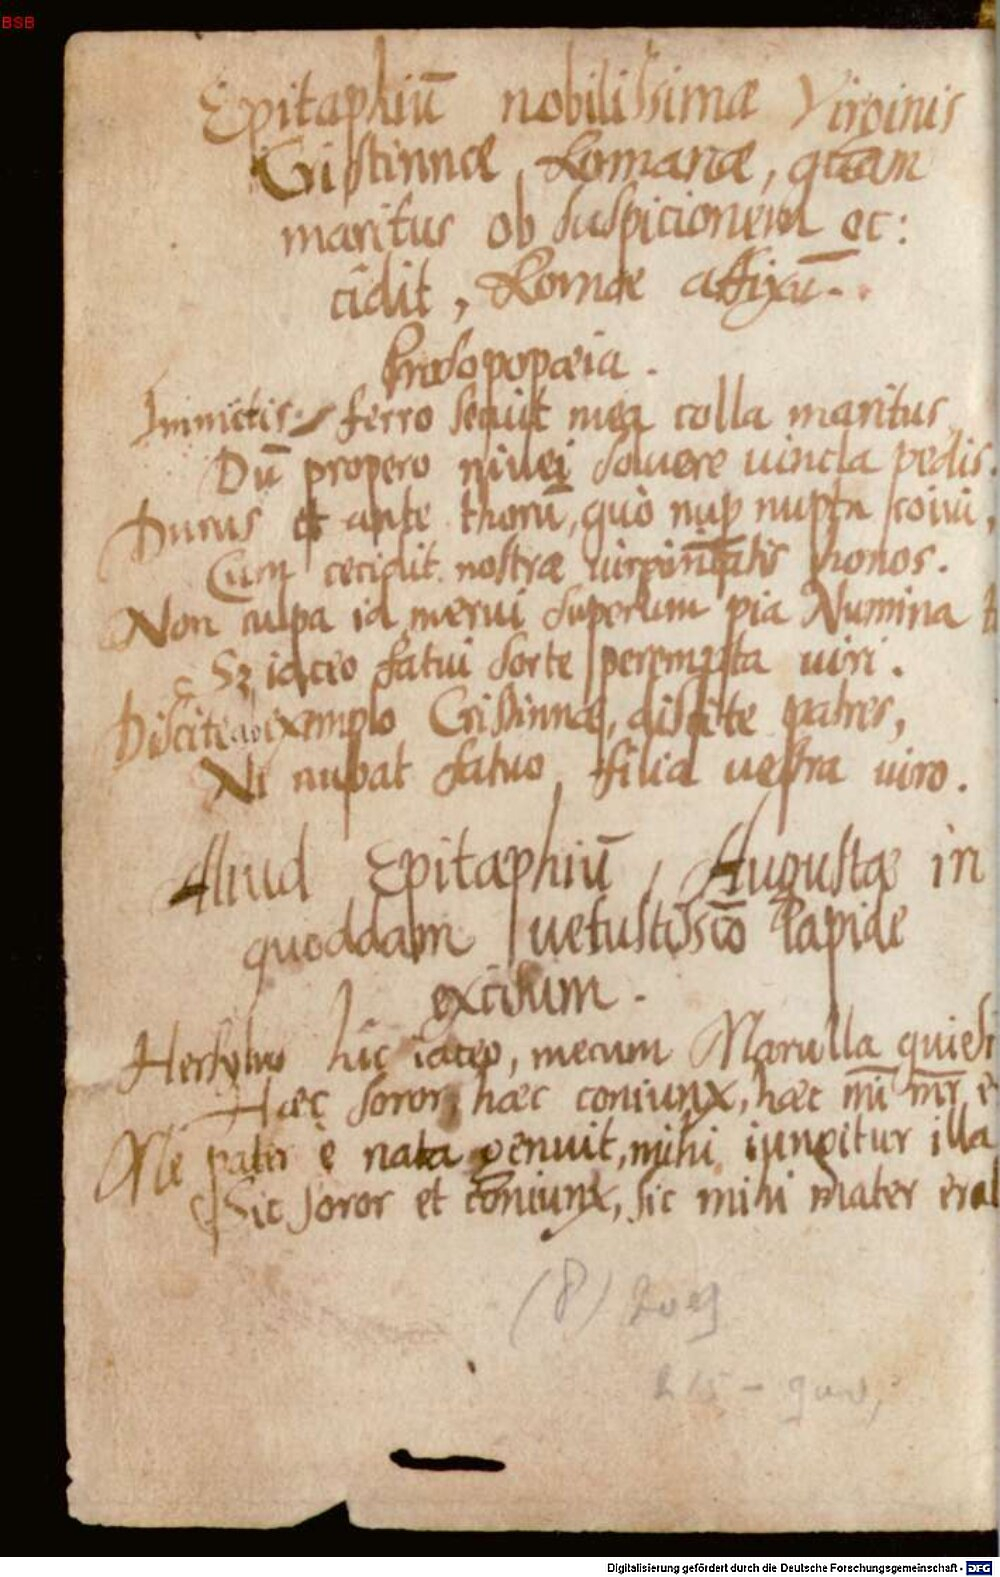 BSB
Epitaphiū nobilissimæ Virginis
Cristinnæ Romanæ, quam
maritus ob suspicionem oc:
cidit, Romæ affixū.
Prosopopæia.
Immitis ferro secuit mea colla maritus,
Dū propero niuei soluere uincla pedis.
Durus et ante thorū, quo nup nupta coiui,
Cum cecidit nostræ uirginitatis honos.
Non culpa id merui superum pia Numina
Sꝫ iaceo fatui sorte perempta uiri.
Discite ab exemplo Cristinnæ, discite patres,
Ne nubat fatuo filia uestra uiro.
Aliud Epitaphiū, Augustæ in
quoddam uetustissīo Lapide
excisum.
Hersylus hic iaceo, mecum Marulla quiesc
Hæc soror, hæc coniunx, hæc mī mr̄ e
Me pater è nata genuit, mihi iungitur illa
Sic soror et coniunx, sic mihi mater erat
(8)
Digitalisierung gefördert durch die Deutsche Forschungsgemeinschaft - DFG